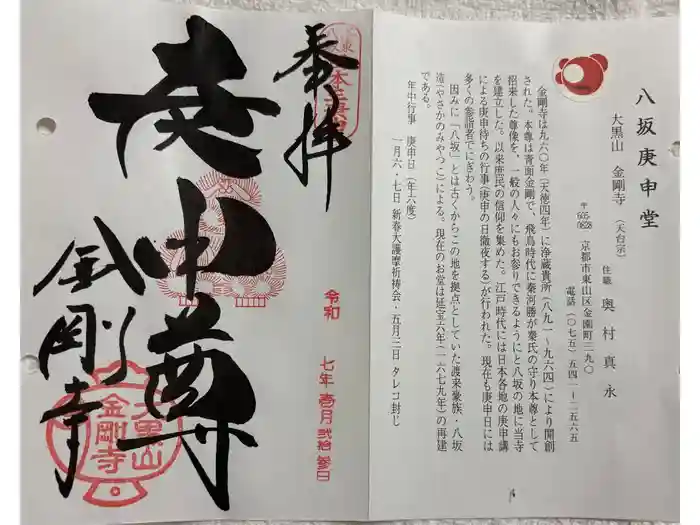 八坂庚申堂
大黒山 金剛寺 (天台宗)
住職 奥村真永
〒605-0828 京都市東山区金園町三九〇
電話(〇七五)五四一―二五六五
金剛寺は九六〇年(天徳四年)に浄蔵貴所(八九一〜九六四)により開創
された。本尊は青面金剛で、飛鳥時代に秦河勝が秦氏の守り本尊として
招来した尊像を、一般の人々にもお参りできるようにと八坂の地に当寺
を建立した。以来庶民の信仰を集めた。江戸時代には日本各地の庚申講
による庚申待ちの行事(庚申の日徹夜する)が行われた。現在も庚申日には
多くの参詣者でにぎわう。
因みに「八坂」とは古くからこの地を拠点としていた渡来豪族・八坂
造(やさかのみやつこ)による。現在のお堂は延宝六年(一六七九年)の再建
である。
年中行事 庚申日(年六度)
一月六・七日 新春大護摩祈祷会・五月三日 タレコ封じ
奉拝
庚申尊
金剛寺
大黒山
金剛寺
令和 七年 壱月 弐拾参日